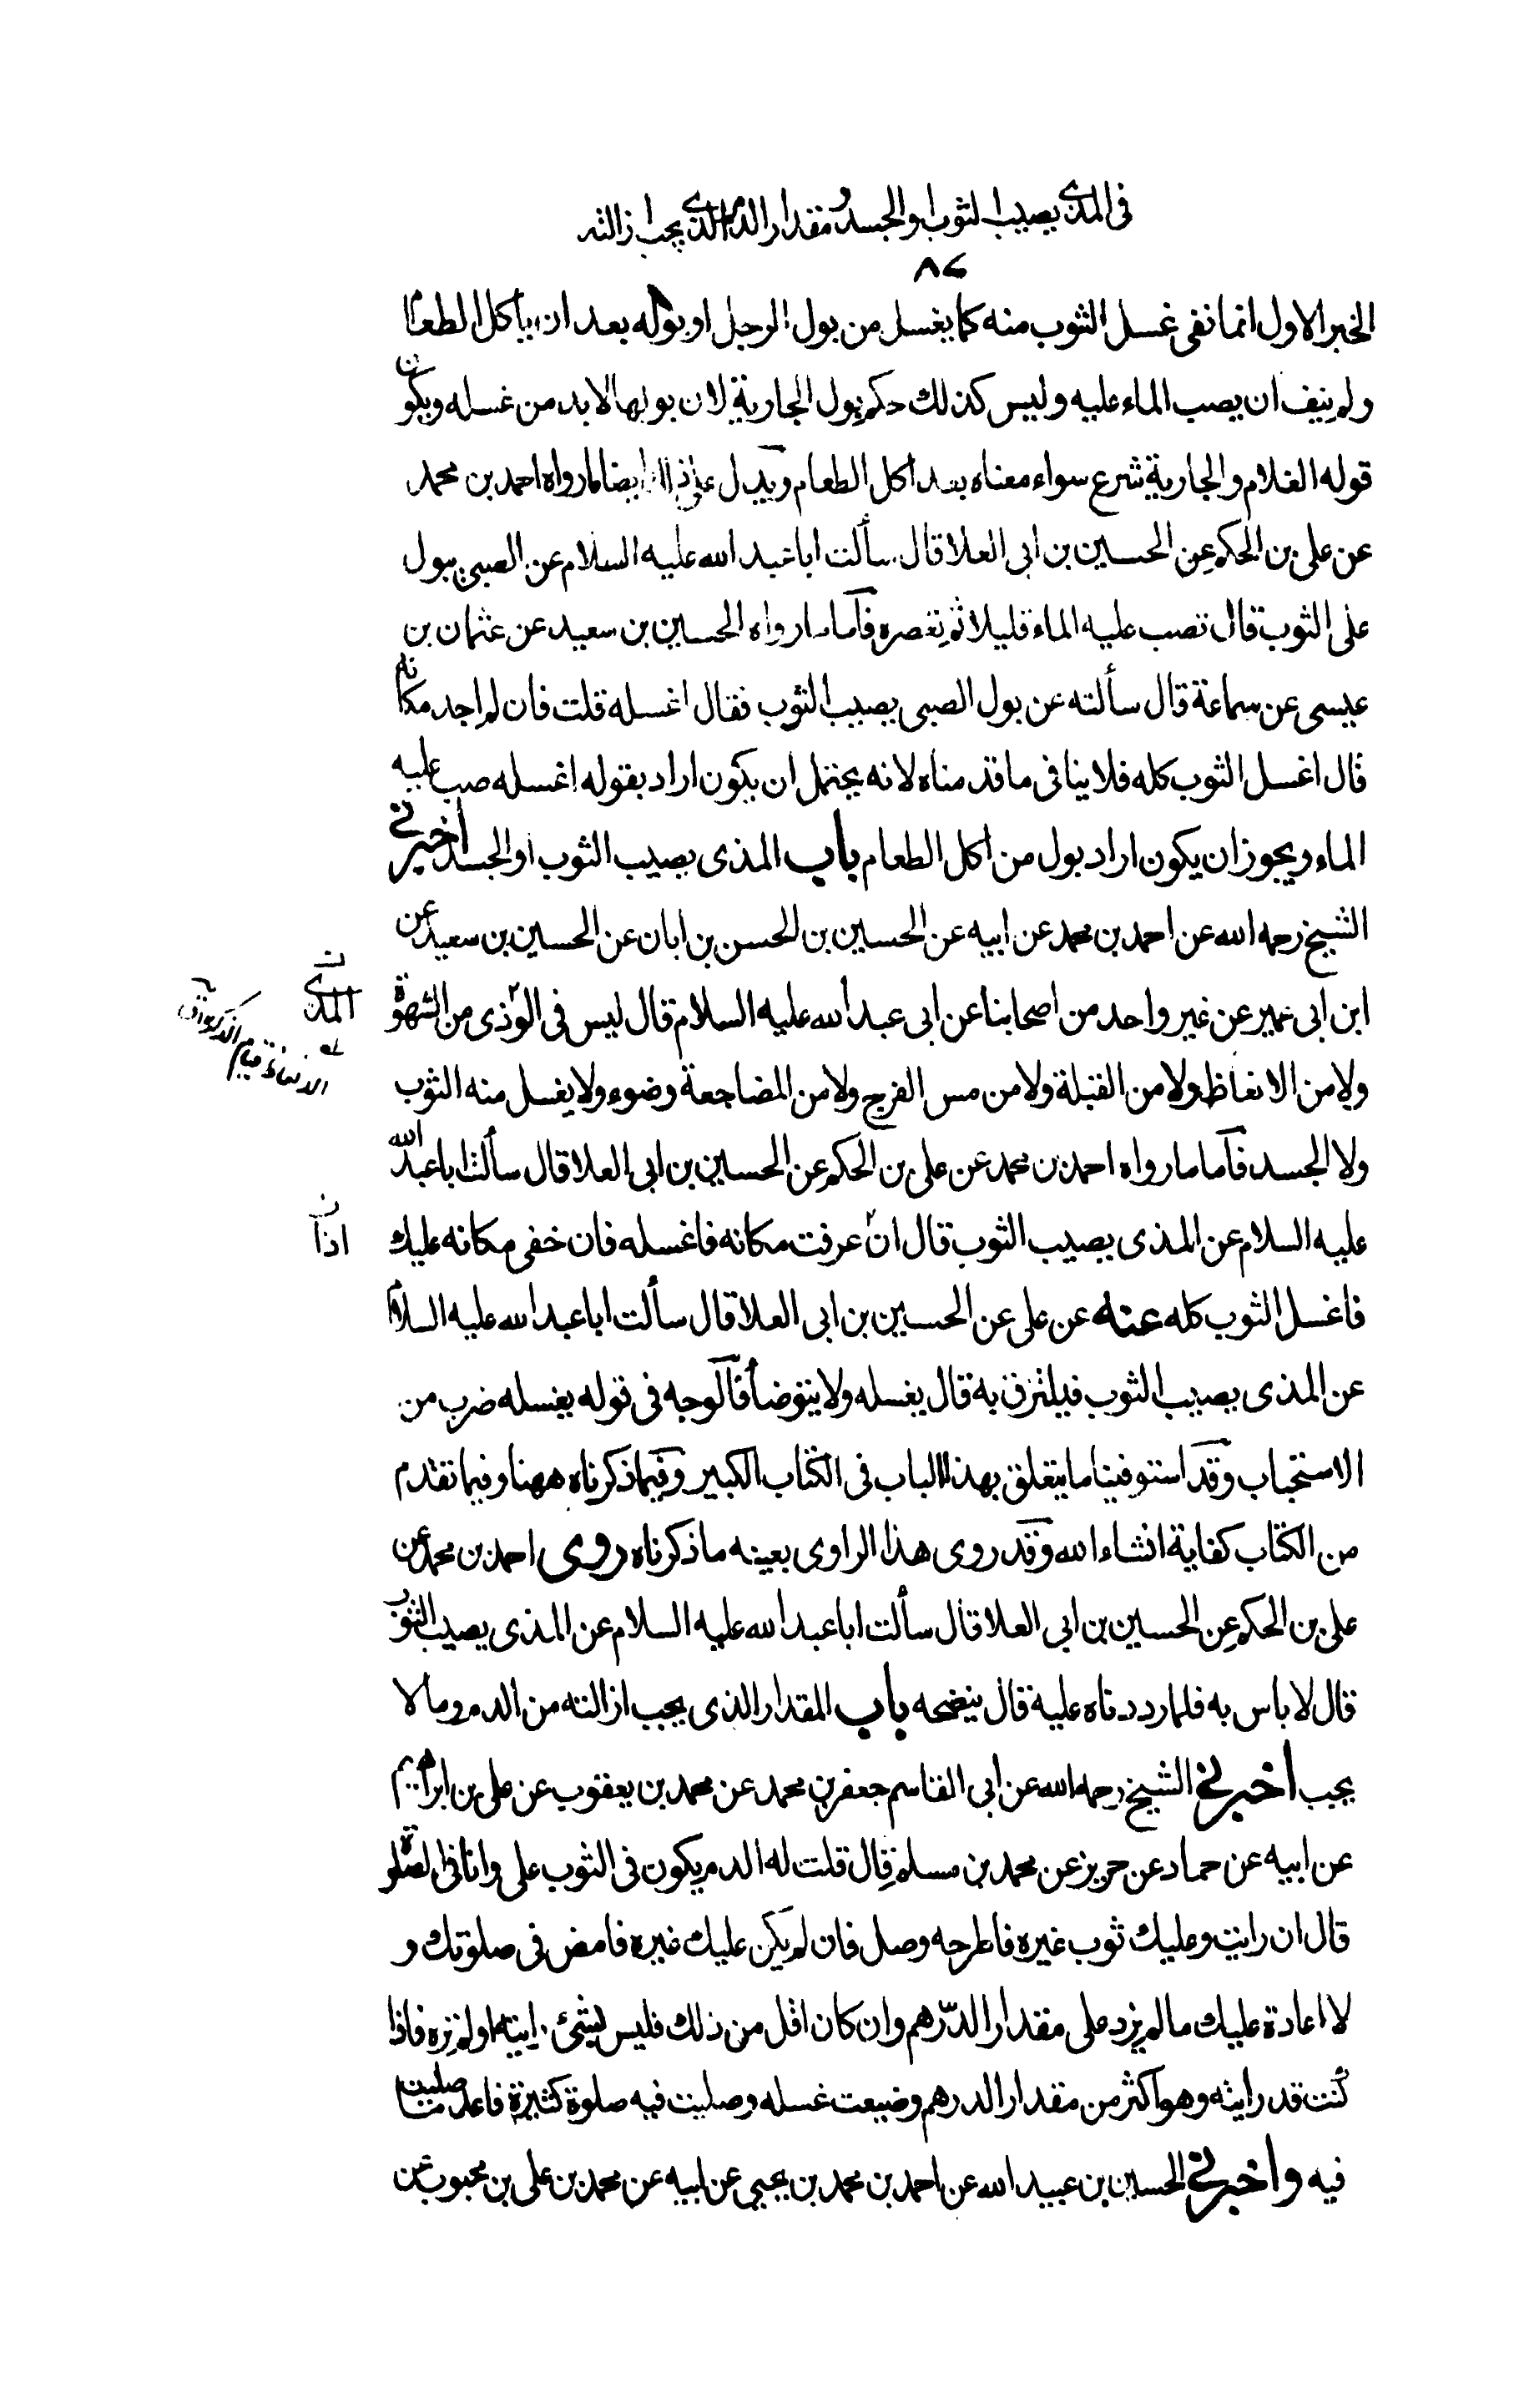 فى المذى يصيب الثوب او الجسد و مقدار الدم الذى يجب ازالته
٨٤
الخبر الاول انما نفى غسل الثوب منه كما يغسل من بول الرجل او بوله بعد ان ياكل الطعام
ولم ينف ان يصب الماء عليه وليس كذلك حكم بول الجارية لان بولها لابد من غسله ويكون
قوله الغلام والجارية شرع سواء معناه بعد اكل الطعام ويدل على ذلك ايضا ما رواه احمد بن محمد
عن على بن الحكم عن الحسين بن ابى العلا قال سألت ابا عبد الله عليه السلام عن الصبى يبول
على الثوب قال تصب عليه الماء قليلا ثم تعصره فاما ما رواه الحسين بن سعيد عن عثمان بن
عيسى عن سماعة قال سألته عن بول الصبى يصيب الثوب فقال اغسله قلت فان لم اجد مكانه
قال اغسل الثوب كله فلا ينافى ما قدمناه لانه يحتمل ان يكون اراد بقوله اغسله صب عليه
الماء ويجوز ان يكون اراد بول من اكل الطعام باب المذى يصيب الثوب او الجسد اخبرنى
الشيخ رحمه الله عن احمد بن محمد عن ابيه عن الحسين بن الحسن بن ابان عن الحسين بن سعيد عن
ابن ابى عمير عن غير واحد من اصحابنا عن ابى عبد الله عليه السلام قال ليس فى الوذى من الشهوة
المذى
ولا من الانعاظ ولا من القبلة ولا من مس الفرج ولا من المضاجعة وضوء ولا يغسل منه الثوب
ولا الجسد فاما ما رواه احمد بن محمد عن على بن الحكم عن الحسين بن ابى العلا قال سألت ابا عبد الله
عليه السلام عن المذى يصيب الثوب قال ان عرفت مكانه فاغسله فان خفى مكانه عليك
اذا
فاغسل الثوب كله عنه عن على عن الحسين بن ابى العلا قال سألت ابا عبد الله عليه السلام
عن المذى يصيب الثوب فيلتزق به قال يغسله ولا يتوضأ فالوجه فى قوله يغسله ضرب من
الاستحباب وقد استوفينا ما يتعلق بهذا الباب فى الكتاب الكبير وفيما ذكرناه ههنا وفيما تقدم
من الكتاب كفاية انشاء الله وقد روى هذا الراوى بعينه ما ذكرناه روى احمد بن محمد عن
على بن الحكم عن الحسين بن ابى العلا قال سألت ابا عبد الله عليه السلام عن المذى يصيب الثوب
قال لا باس به فلما رددناه عليه قال ينضحه باب المقدار الذى يجب ازالته من الدم وما لا
يجب اخبرنى الشيخ رحمه الله عن ابى القاسم جعفر بن محمد عن محمد بن يعقوب عن على بن ابراهيم
عن ابيه عن حماد عن حريز عن محمد بن مسلم قال قلت له الدم يكون فى الثوب على وانا فى الصلوة
قال ان رايت وعليك ثوب غيره فاطرحه وصل فان لم يكن عليك غيره فامض فى صلوتك و
لا اعادة عليك ما لم يزد على مقدار الدرهم وان كان اقل من ذلك فليس بشئ رايته او لم تره فاذا
كنت قد رايته وهو اكثر من مقدار الدرهم وضيعت غسله وصليت فيه صلوة كثيرة فاعد ما صليت
فيه واخبرنى الحسين بن عبيد الله عن احمد بن محمد بن يحيى عن ابيه عن محمد بن على بن محبوب عن